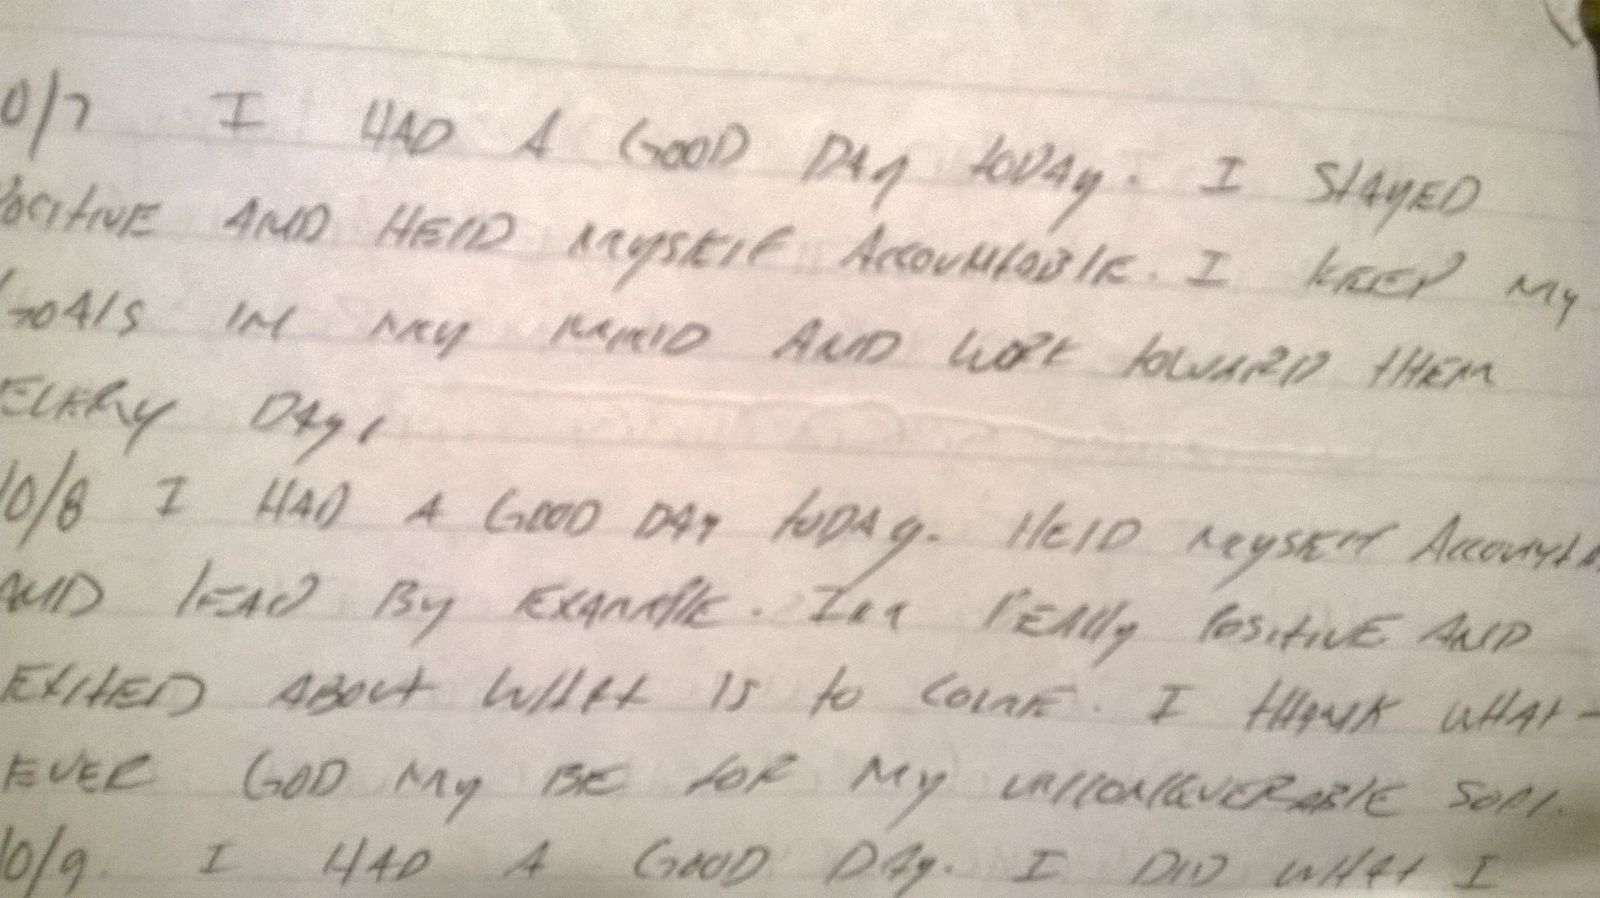 0/7 I HAD A GOOD DAY TODAY. I STAYED
POCITIVE AND HELD MYSELF ACCOUNTABLE. I KEEP MY
GOALS IN MY MIND AND WORK TOWARD THEM
EVERY DAY,
10/8 I HAD A GOOD DAY TODAY. HELD MYSELF ACCOUNTA
AND LEAD BY EXAMPLE. IM REALLY POSITIVE AND
EXITED ABOUT WHAT IS TO COME. I THANK WHAT-
EVER GOD MY BE FOR MY UNCONQUERABLE SOUL.
10/9. I HAD A GOOD DAY. I DID WHAT I